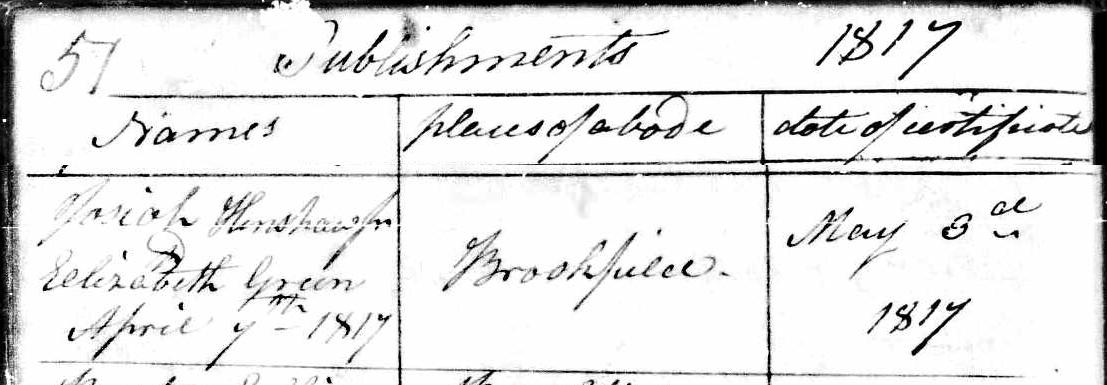 51 Publishments 1817
Names places of abode date of certificate
Josiah Henshaw Jr
Eelizabeth Green
April 7th 1817
Brookfield.
May 3d
1817